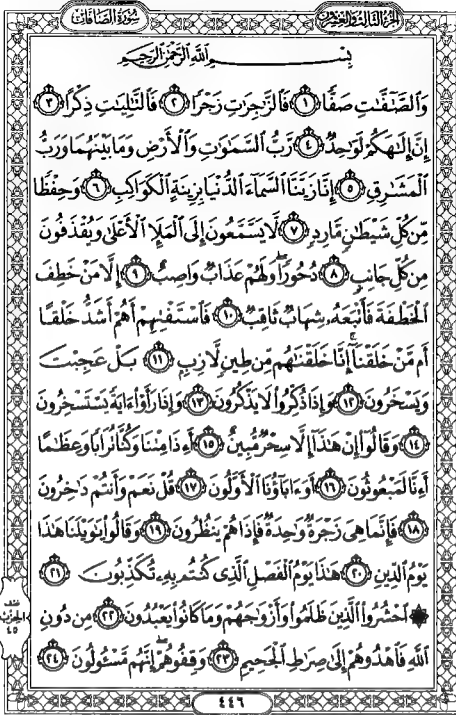 سورة الصافات
الجزء الثالث والعشرون
بِسْمِ ٱللَّهِ ٱلرَّحْمَٰنِ ٱلرَّحِيمِ
وَٱلصَّٰٓفَّٰتِ صَفًّا ١ فَٱلزَّٰجِرَٰتِ زَجْرًا ٢ فَٱلتَّٰلِيَٰتِ ذِكْرًا ٣
إِنَّ إِلَٰهَكُمْ لَوَٰحِدٌ ٤ رَّبُّ ٱلسَّمَٰوَٰتِ وَٱلْأَرْضِ وَمَا بَيْنَهُمَا وَرَبُّ
ٱلْمَشَٰرِقِ ٥ إِنَّا زَيَّنَّا ٱلسَّمَآءَ ٱلدُّنْيَا بِزِينَةٍ ٱلْكَوَاكِبِ ٦ وَحِفْظًا
مِّن كُلِّ شَيْطَٰنٍ مَّارِدٍ ٧ لَّا يَسَّمَّعُونَ إِلَى ٱلْمَلَإِ ٱلْأَعْلَىٰ وَيُقْذَفُونَ
مِن كُلِّ جَانِبٍ ٨ دُحُورًا ۖ وَلَهُمْ عَذَابٌ وَاصِبٌ ٩ إِلَّا مَنْ خَطِفَ
ٱلْخَطْفَةَ فَأَتْبَعَهُۥ شِهَابٌ ثَاقِبٌ ١٠ فَٱسْتَفْتِهِمْ أَهُمْ أَشَدُّ خَلْقًا
أَم مَّنْ خَلَقْنَآ ۚ إِنَّا خَلَقْنَٰهُم مِّن طِينٍ لَّازِبٍ ١١ بَلْ عَجِبْتَ
وَيَسْخَرُونَ ١٢ وَإِذَا ذُكِّرُوا۟ لَا يَذْكُرُونَ ١٣ وَإِذَا رَأَوْا۟ ءَايَةً يَسْتَسْخِرُونَ
١٤ وَقَالُوٓا۟ إِنْ هَٰذَآ إِلَّا سِحْرٌ مُّبِينٌ ١٥ أَءِذَا مِتْنَا وَكُنَّا تُرَابًا وَعِظَٰمًا
أَءِنَّا لَمَبْعُوثُونَ ١٦ أَوَءَابَآؤُنَا ٱلْأَوَّلُونَ ١٧ قُلْ نَعَمْ وَأَنتُمْ دَٰخِرُونَ
١٨ فَإِنَّمَا هِىَ زَجْرَةٌ وَٰحِدَةٌ فَإِذَا هُمْ يَنظُرُونَ ١٩ وَقَالُوا۟ يَٰوَيْلَنَا هَٰذَا
يَوْمُ ٱلدِّينِ ٢٠ هَٰذَا يَوْمُ ٱلْفَصْلِ ٱلَّذِى كُنتُم بِهِۦ تُكَذِّبُونَ ٢١
۞ ٱحْشُرُوا۟ ٱلَّذِينَ ظَلَمُوا۟ وَأَزْوَٰجَهُمْ وَمَا كَانُوا۟ يَعْبُدُونَ ٢٢ مِن دُونِ
ٱللَّهِ فَٱهْدُوهُمْ إِلَىٰ صِرَٰطِ ٱلْجَحِيمِ ٢٣ وَقِفُوهُمْ ۖ إِنَّهُم مَّسْـُٔولُونَ ٢٤
نصف
الحزب
٤٥
٤٤٦